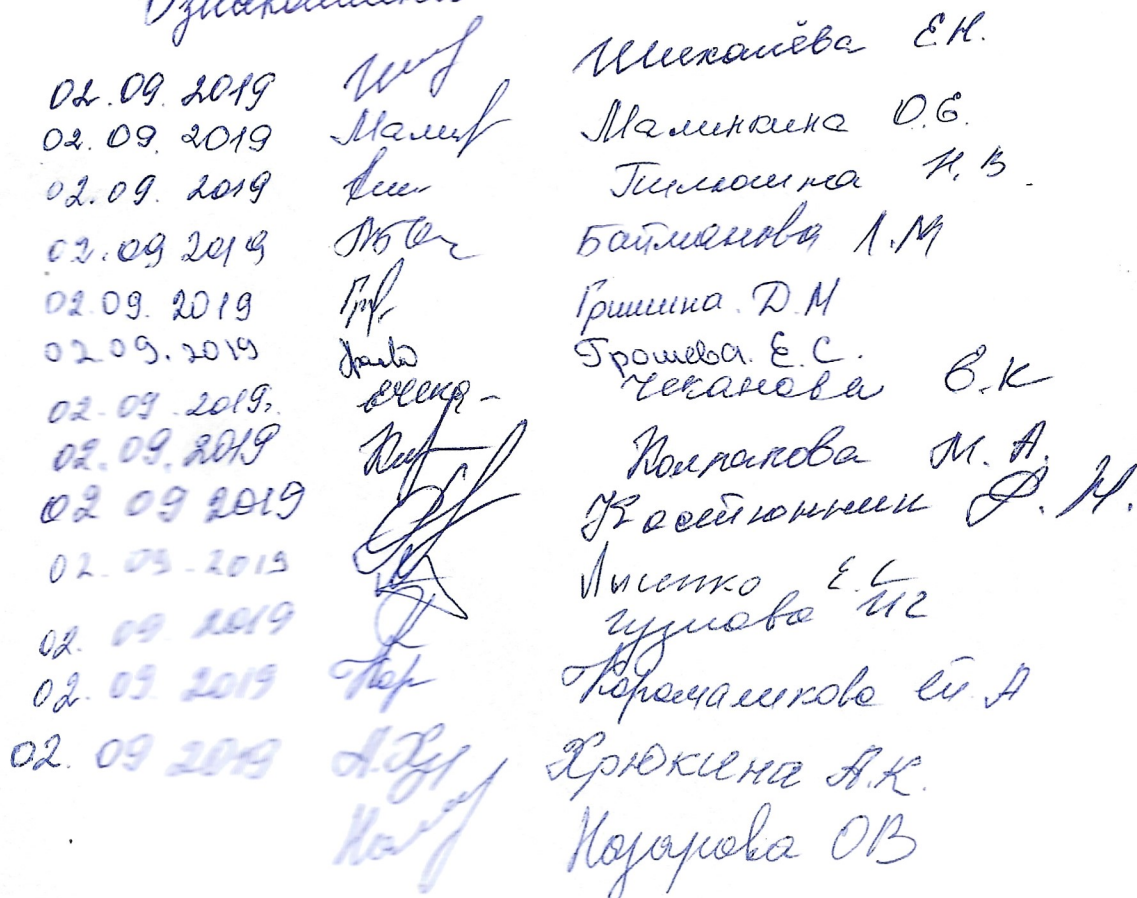 Ознакомлены
02.09.2019 Шихалёва Е.Н.
02.09.2019 Малин Малинкина О.Е.
02.09.2019 Н.В.
02.09 2019 Байманова Л.М
02.09.2019 Гр Гришина Д.М
02.09.2019 Грошева Е.С.
02.09.2019. Чеканова Е.К
02.09.2019 Колпакова М.А.
02 09 2019 Костюнник Р.Н.
02.09.2019 Лысенко Е.С
02. 09 2019 ИГ
02. 09 2019 Кар Карамаликова А
02. 09 2019 А.Хр Хрюкина А.К.
Наз Назарова ОВ